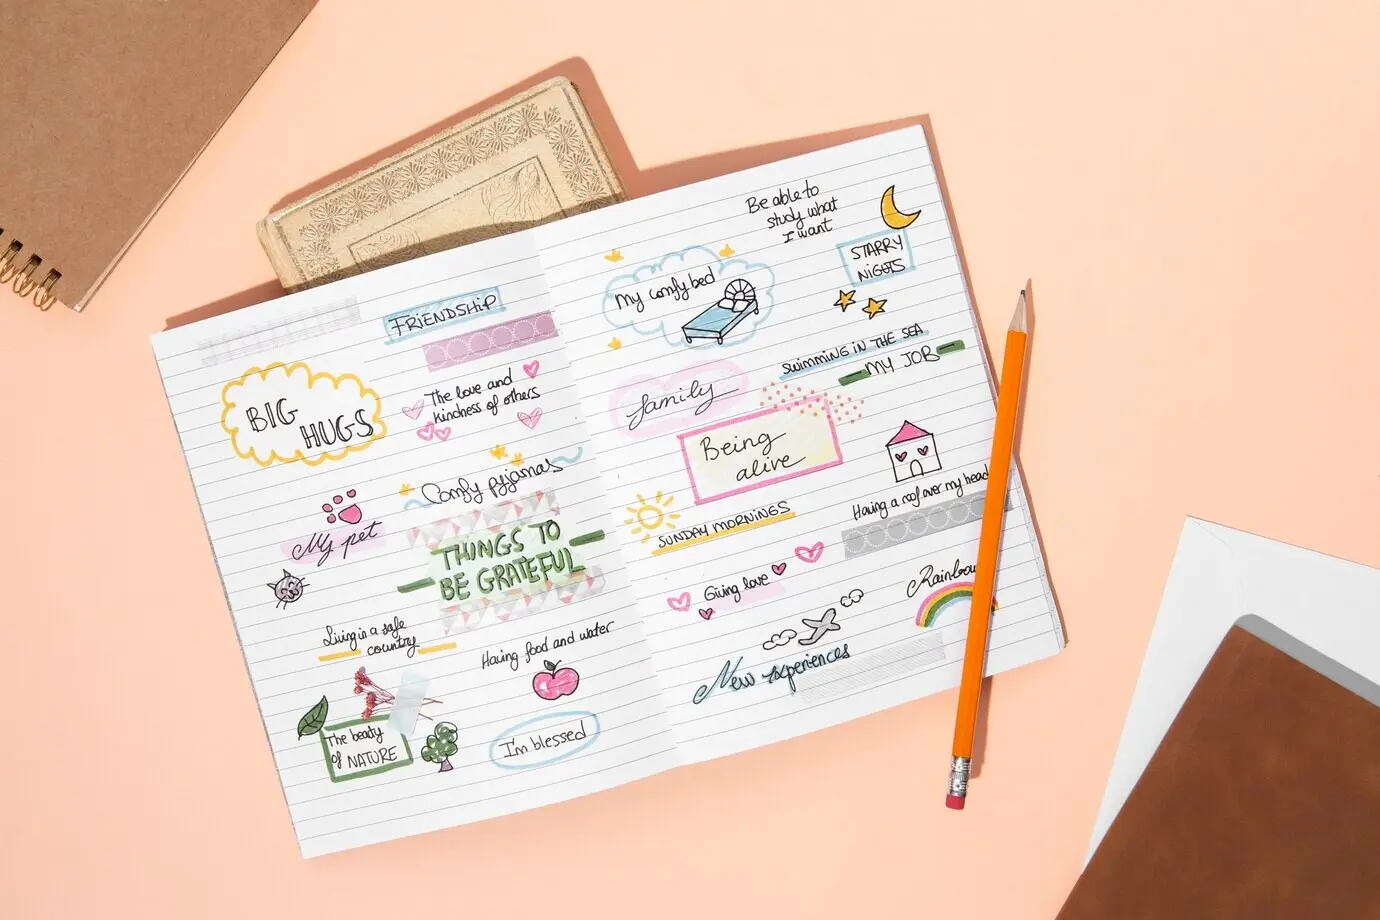 FRIENDSHIP
BIG
HUGS
The love and
kindness of others
Comfy pyjamas
My pet
THINGS TO
BE GRATEFUL
Living in a safe
country
Having food and water
The beauty
of NATURE
I'm blessed
Be able to
study what
I want
STARRY
NIGHTS
My comfy bed
SWIMMING IN THE SEA
MY JOB
family
Being
alive
Having a roof over my head
SUNDAY MORNINGS
Giving love
Rainbow
New experiences